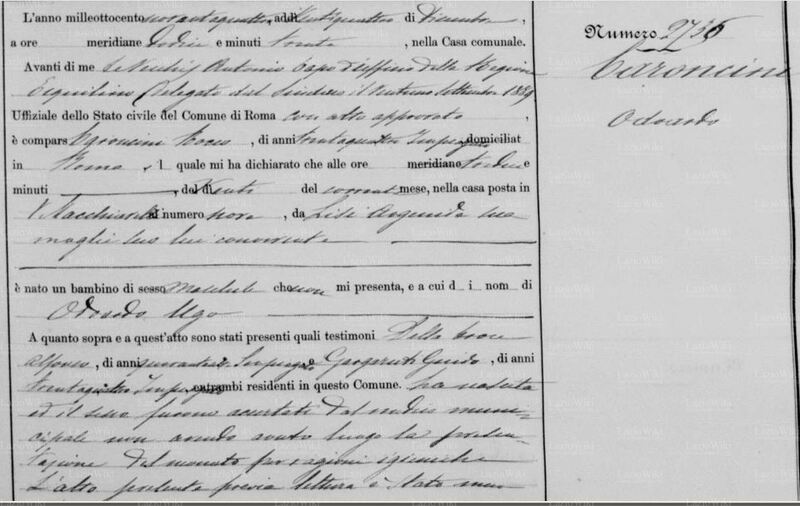 L'anno milleottocento novantaquattro, addì ventiquattro di Dicembre,
a ore meridiane dodici e minuti trenta, nella Casa comunale.
Avanti di me Antonio Capo d'uffizio della Regione
Esquilino Delegato del Sindaco il
Uffiziale dello Stato civile del Comune di Roma con atto approvato,
è compars , di anni trentaquattro Impiegato domiciliat
in Roma, l quale mi ha dichiarato che alle ore meridiane tredici e
minuti , del dì venti del corrente mese, nella casa posta in
V Macchiavelli al numero nove, da sua
moglie seco lui convivente
è nato un bambino di sesso maschile che non mi presenta, e a cui d i nom di
Odoardo Ugo
A quanto sopra e a quest'atto sono stati presenti quali testimoni Della
Alfonso, di anni Impiegato e Guido, di anni
trentaquattro Impiegato entrambi residenti in questo Comune. La nascita
ed il sesso furono accertati dal medico muni-
cipale non avendo avuto luogo la presen-
tazione del neonato per ragioni igieniche
L'atto presente previa lettura è stato mu
Numero 2736
Caroncini
Odoardo